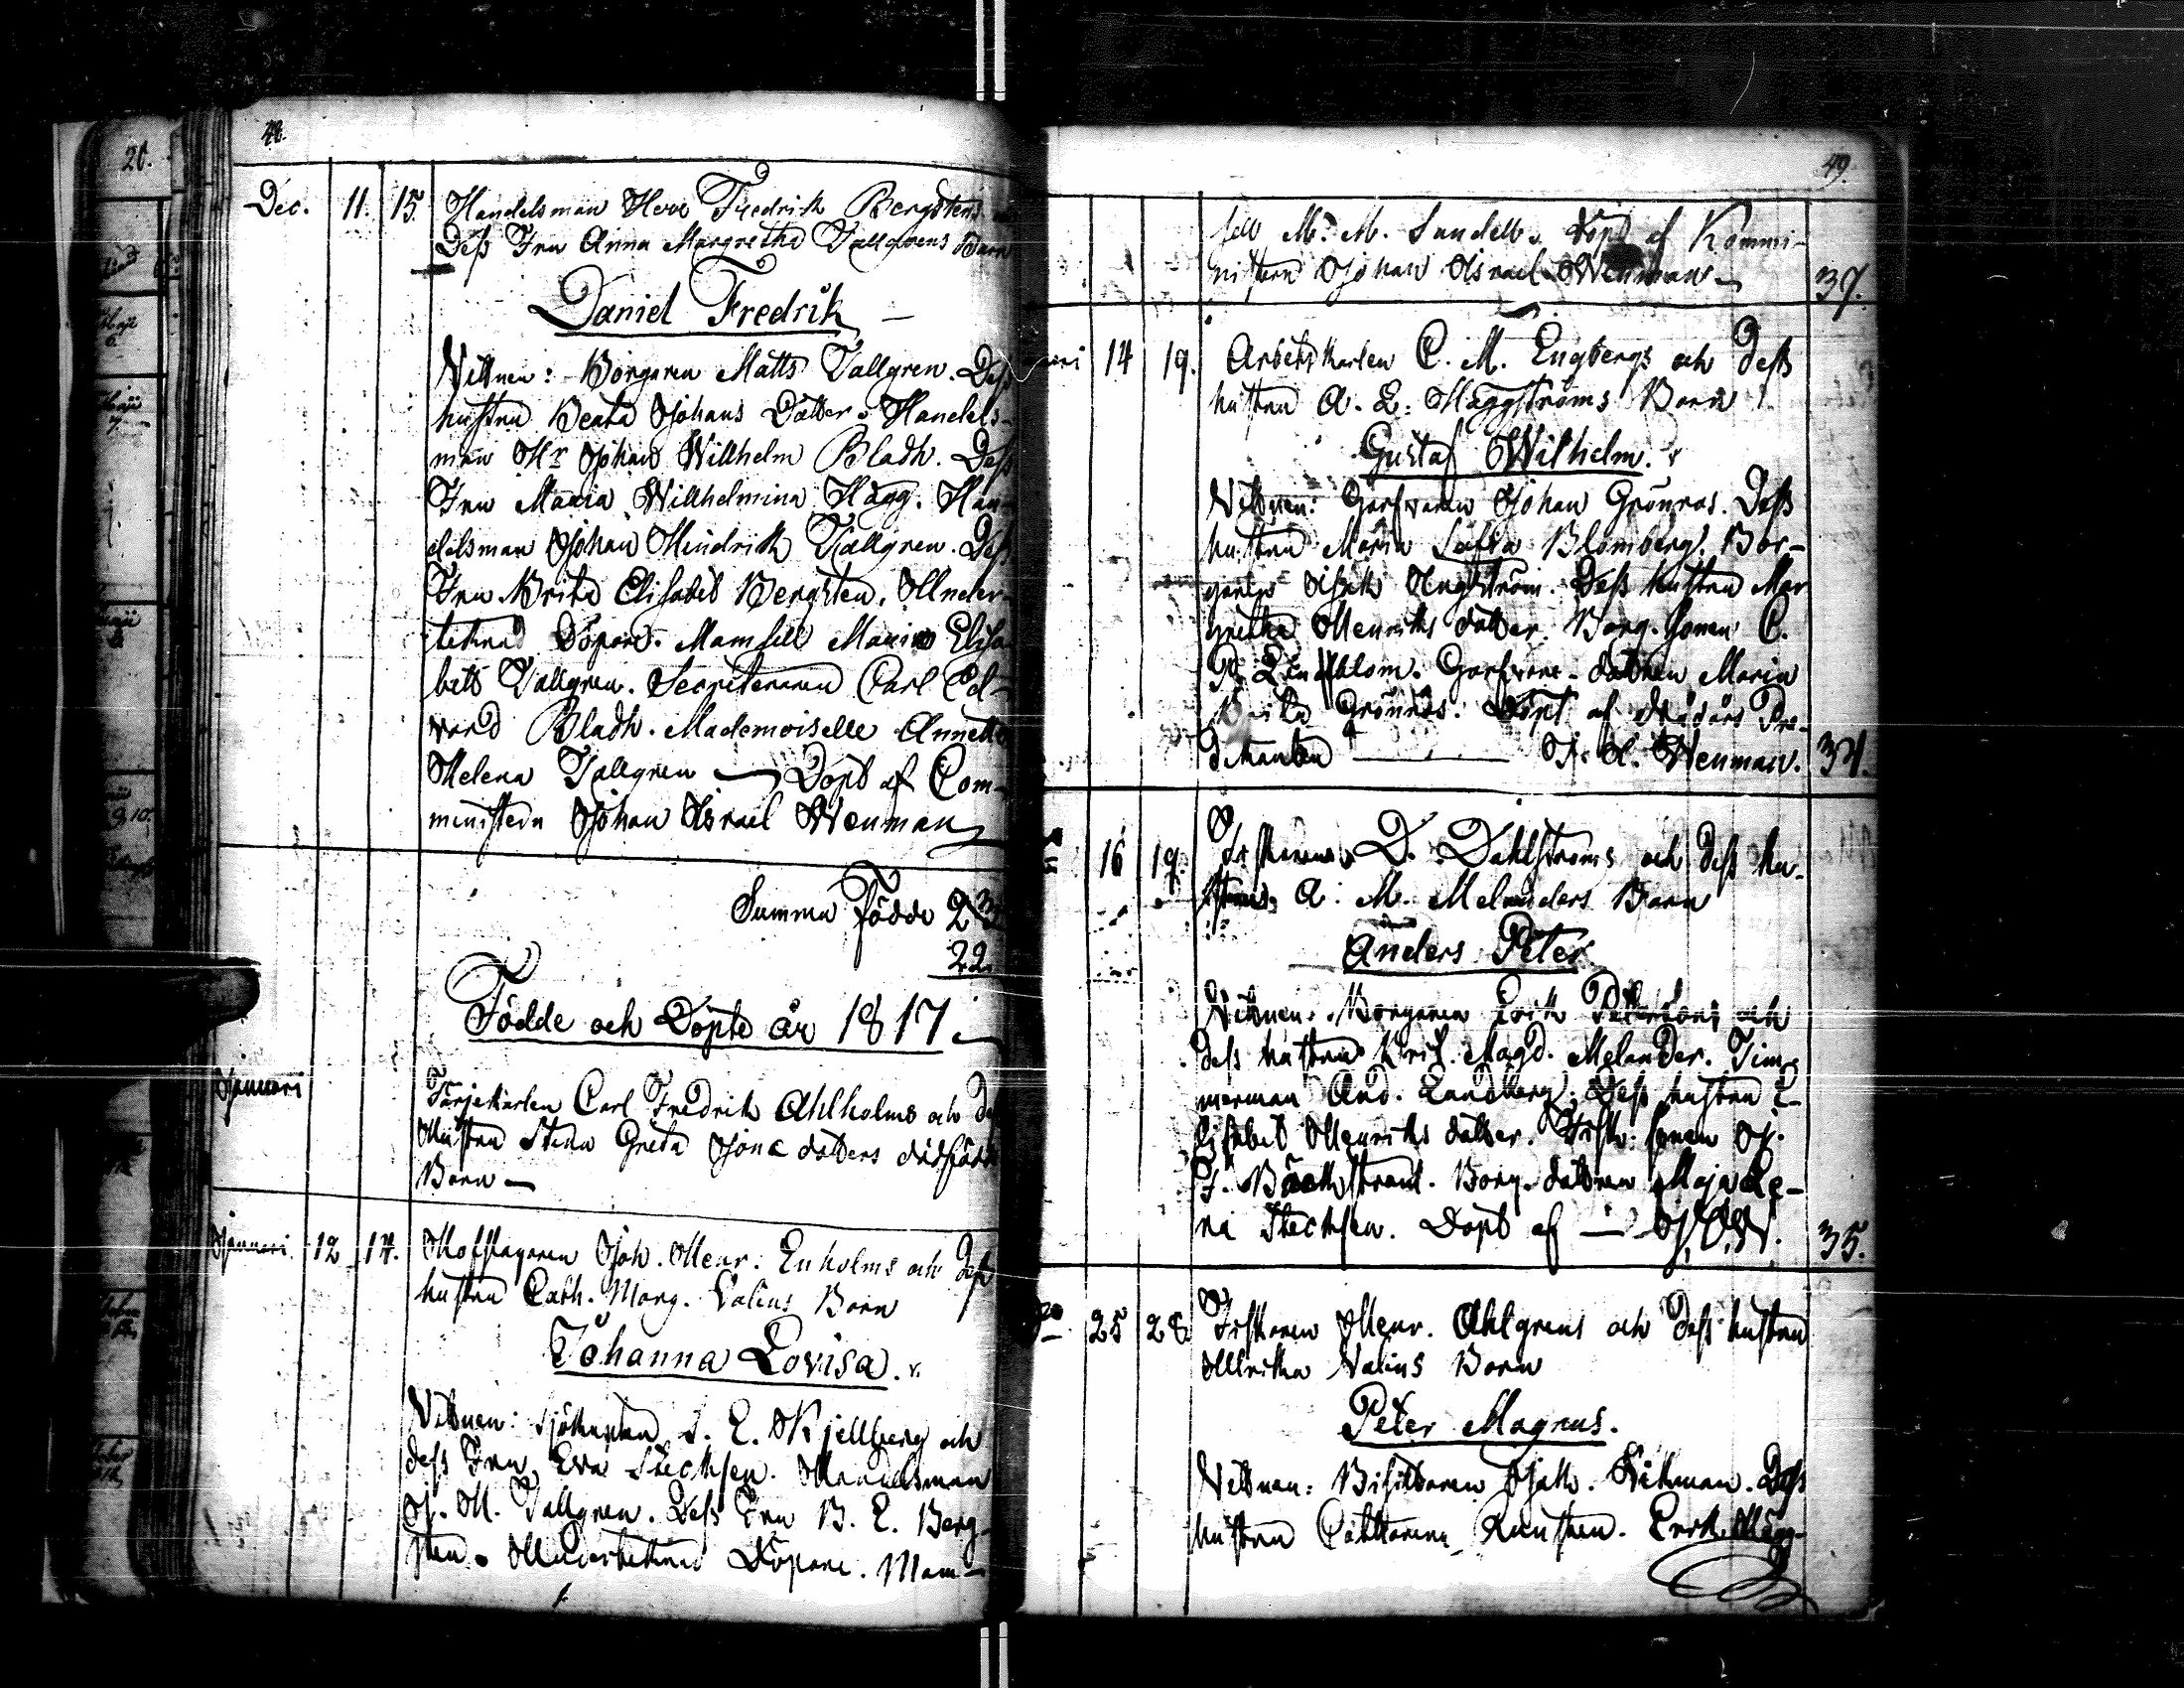 48.
Dec. 11. 15. Handelsman Herr Fredrik Bergstens
Dess Fru Anna Margretha Tallgrens Barn
Daniel Fredrik
Vittnen: Borgaren Matts Tallgren. Dess
hustru Beata Johans Dotter. Handels-
man Hr Johan Willhelm Bladh. Dess
Fru Maria Willhelmina Hägg. Han-
delsman Johan Hindrik Tallgren. Dess
Fru Brita Elisabet Bergsten. Under-
teknad Döpare. Mamsell Maria Elisa-
beth Tallgren. Secreteraren Carl Ed-
vard Bladh. Mademoiselle Annette
Helena Tallgren — Döpt af Com-
ministern Johan Israel Wenman
Summa födde 23
22
Födde och Döpte år 1817.
Januari Färjekarlen Carl Fredrik Ahlholms och
Hustru Stina Greta Jons dotters dödfödda
Barn —
Januari. 12 14. Hofslagaren Joh. Henr. Enholms och Dess
hustru Cath. Marg. Valius Barn
Johanna Lovisa.
Vittnen: Sjökapten E. Kjellberg och
dess Fru Eva Stechsen. Handelsman
J. H. Tallgren. Dess Fru B. E. Berg-
sten. Undertecknad Döpare. Mam-
49.
sell M. M. Sundell. Döpt af Kommi-
nistern Johan Israel Wenman 37.
14 19. Arbetskarlen C. M. Engbergs och Dess
hustru A. L. Häggströms Barn
Gustaf Wilhelm.
Vittnen: Garfvaren Johan Grönros. Dess
hustru Maria Sofia Blomberg. Bor-
garen Isak Engström. Dess hustru Mar
gretha Henriks dotter. Borg. sonen C.
Lindblom. Garfvare-dottren Maria
Brita Grönros. Döpt af Pre-
dikanten — J. I. Wenman. 34.
16 19. Fiskaren D. Dahlströms och dess hu-
strus A. M. Melanders Barn
Anders Peter
Vittnen: Borgaren Erik Petersons och
dess hustru Magd. Melander. Tim-
merman And. Landberg. Dess hustru E-
lisabet Henriks dotter. Fisk. sonen J.
Bäckstrand. Borg. dottren Maja Le-
na Stechsen. Döpt af — J. I. W. 35.
25 28. Fiskaren Henr. Ahlgrens och Dess hustru
Ullrika Valius Barn
Peter Magnus.
Vittnen: Besökaren Wikman. Dess
hustru Catharina Knutsen. Erik Hägg-